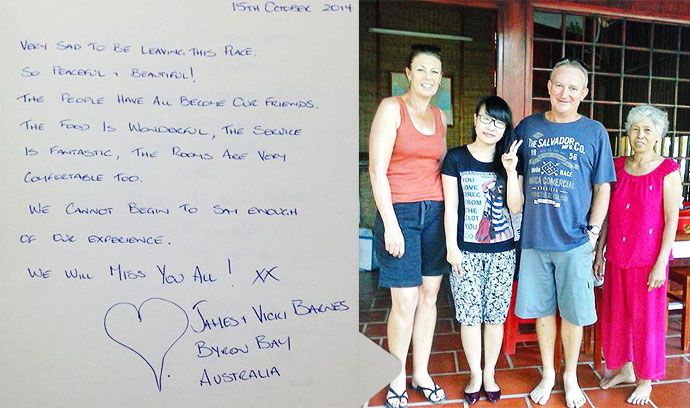 15TH OCTOBER 2014
VERY SAD TO BE LEAVING THIS PLACE.
SO PEACEFUL + BEAUTIFUL!
THE PEOPLE HAVE ALL BECOME OUR FRIENDS.
THE FOOD IS WONDERFUL, THE SERVICE
IS FANTASTIC, THE ROOMS ARE VERY
COMFORTABLE TOO.
WE CANNOT BEGIN TO SAY ENOUGH
OF OUR EXPERIENCE.
WE WILL MISS YOU ALL! XX
JAMES + VICKI BARNES
BYRON BAY
AUSTRALIA
YOU
LOVE
FROM
THE
YOU
THE SALVADOR
MFG. CO.
19 56
RACE
COMERCIAL